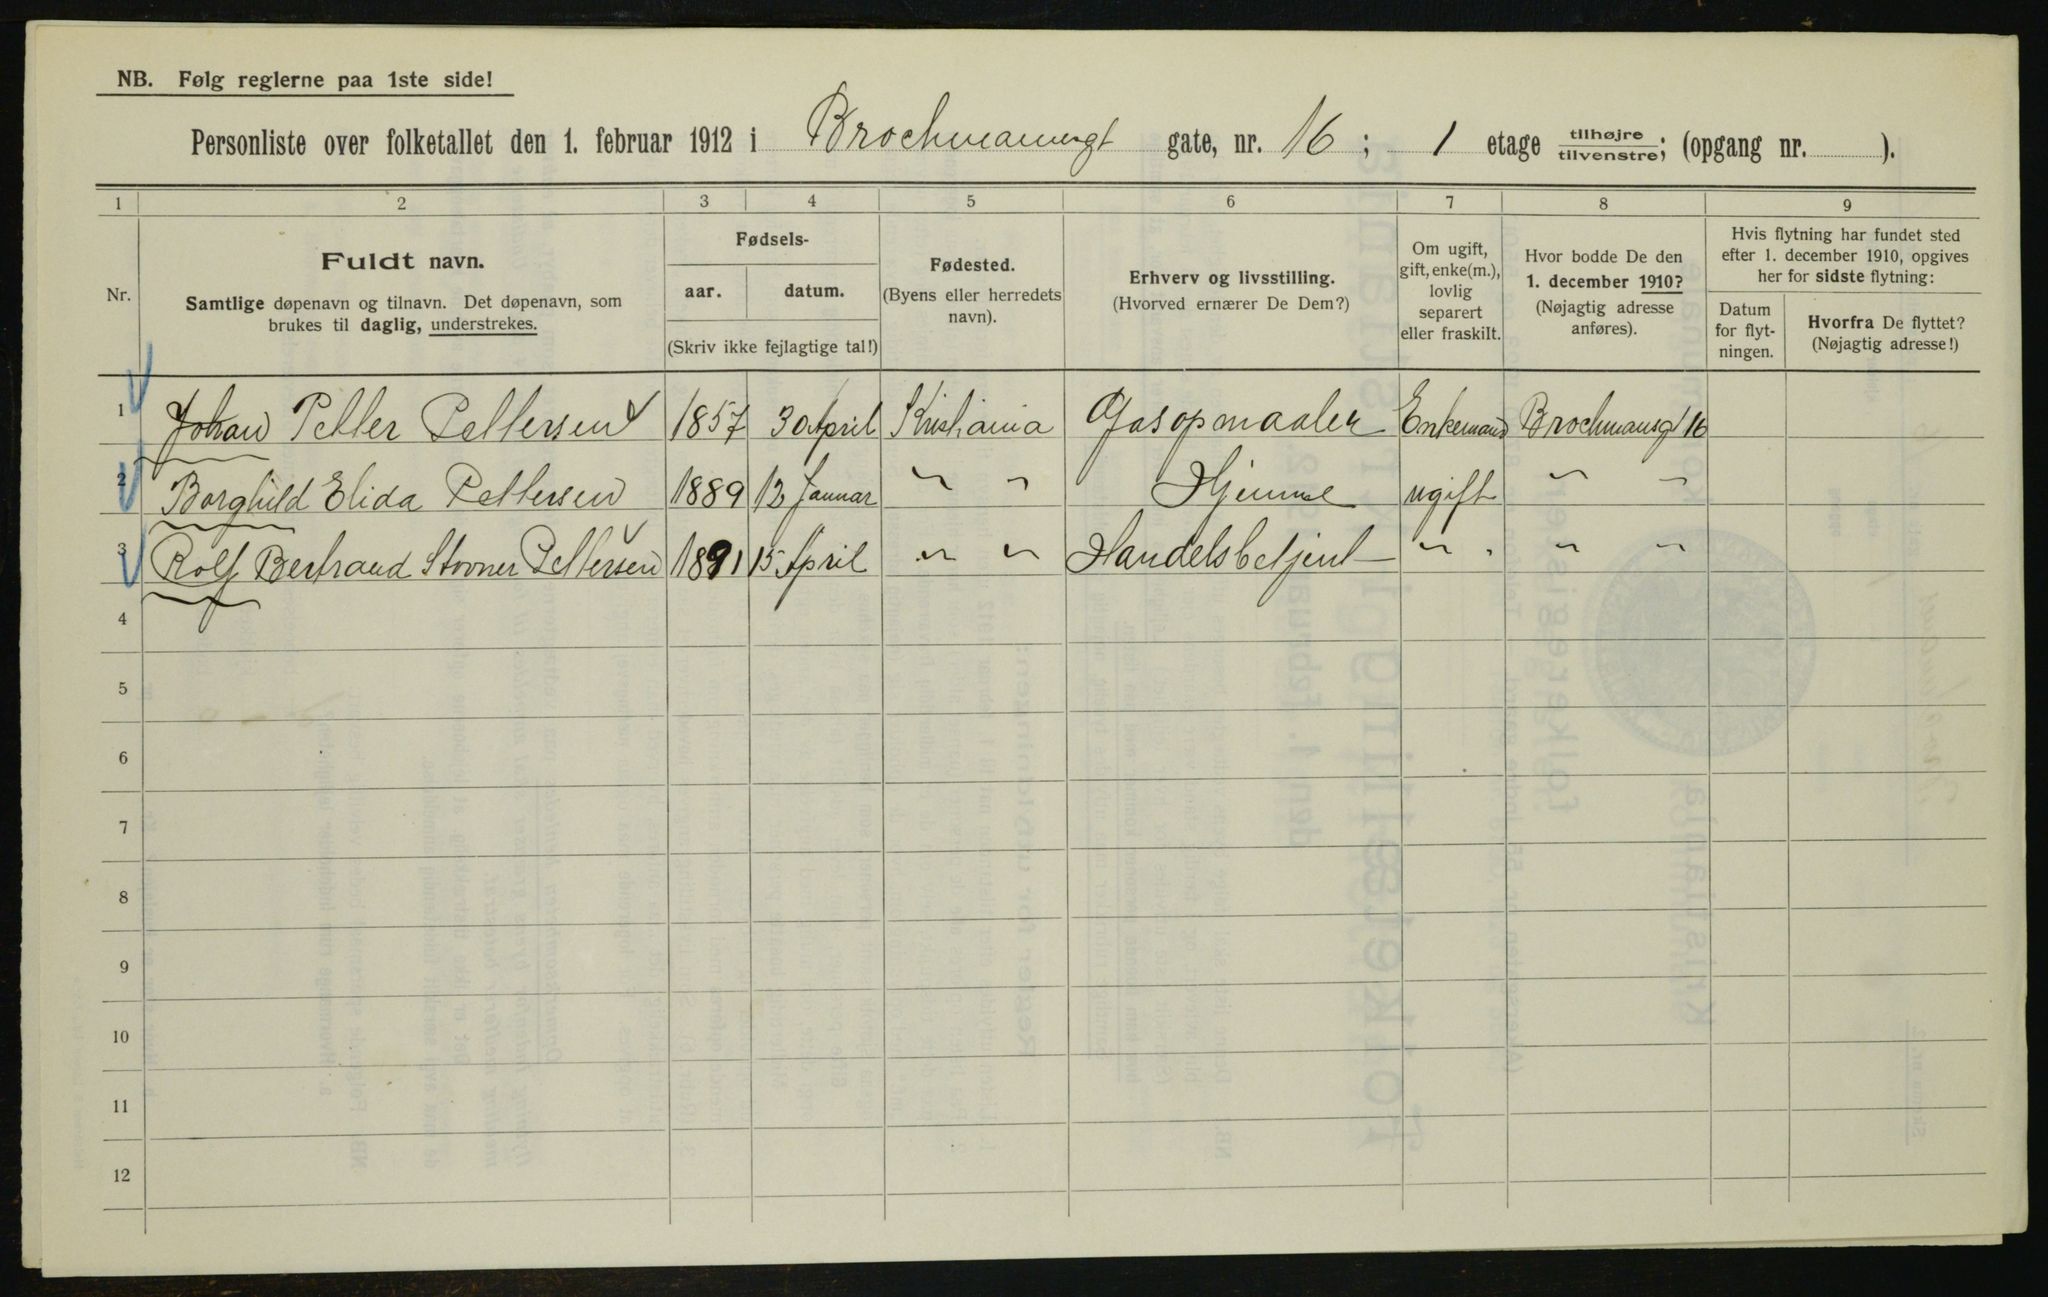 NB. Følg reglerne paa 1ste side!
Personliste over folketallet den 1. februar 1912 i Brochmannsgt gate, nr. 16; 1 etage tilhøjre/tilvenstre; (opgang nr. ).
1 2 3 4 5 6 7 8 9
Nr.
Fuldt navn.
Samtlige døpenavn og tilnavn. Det døpenavn, som
brukes til daglig, understrekes.
Fødsels-
aar. datum.
(Skriv ikke fejlagtige tal!)
Fødested.
(Byens eller herredets
navn).
Erhverv og livsstilling.
(Hvorved ernærer De Dem?)
Om ugift,
gift, enke(m.),
lovlig
separert
eller fraskilt.
Hvor bodde De den
1. december 1910?
(Nøjagtig adresse
anføres).
Hvis flytning har fundet sted
efter 1. december 1910, opgives
her for sidste flytning:
Datum
for flyt-
ningen.
Hvorfra De flyttet?
(Nøjagtig adresse!)
1 Johan Petter Pettersen 1857 30 April Kristiania Gasopmaaler Enkemand Brochmansg 16
2 Borghild Elida Pettersen 1889 12 Januar " " Hjemme ugift " "
3 Rolf Bertrand Stovner Pettersen 1891 15 April " " Handelsbetjent " " " "
4
5
6
7
8
9
10
11
12